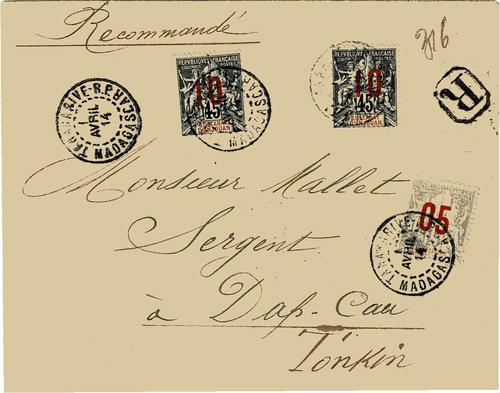 Recommandé
316
R
TANANARIVE-R.P.
1
AVRIL
14
MADAGASCAR
RÉPUBLIQUE FRANÇAISE
COLONIES POSTES
10
45
RÉPUBLIQUE FRANÇAISE
COLONIES POSTES
10
45
MADAGASCAR
Monsieur Mallet
05
Sergent
TANANARIVE-R.P.
1
AVRIL
14
MADAGASCAR
à Dap-Cau
Tonkin